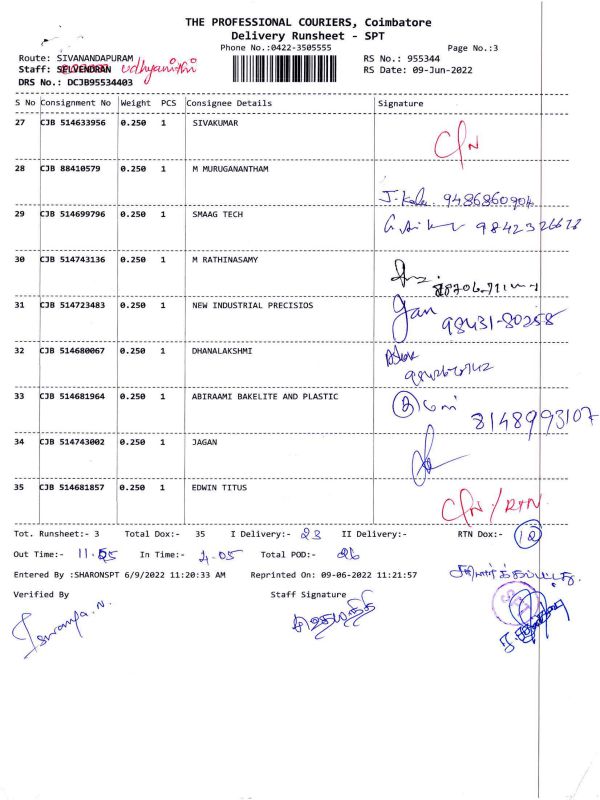 THE PROFESSIONAL COURIERS, Coimbatore
Delivery Runsheet - SPT
Phone No.:0422-3505555
Page No.:3
Route: SIVANANDAPURAM
RS No.: 955344
Staff: SELVENDRAN udhyanithi
RS Date: 09-Jun-2022
DRS No.: DCJB95534403
S No Consignment No Weight PCS Consignee Details Signature
27 CJB 514633956 0.250 1 SIVAKUMAR
28 CJB 88410579 0.250 1 M MURUGANANTHAM
9486860904
29 CJB 514699796 0.250 1 SMAAG TECH
30 CJB 514743136 0.250 1 M RATHINASAMY
31 CJB 514723483 0.250 1 NEW INDUSTRIAL PRECISIOS
98431-80258
32 CJB 514680067 0.250 1 DHANALAKSHMI
33 CJB 514681964 0.250 1 ABIRAAMI BAKELITE AND PLASTIC
8148993107
34 CJB 514743002 0.250 1 JAGAN
35 CJB 514681857 0.250 1 EDWIN TITUS
/ RTN
Tot. Runsheet:- 3 Total Dox:- 35 I Delivery:- 23 II Delivery:- RTN Dox:- 12
Out Time:- In Time:- 4.05 Total POD:- 26
Entered By :SHARONSPT 6/9/2022 11:20:33 AM Reprinted On: 09-06-2022 11:21:57
Verified By Staff Signature